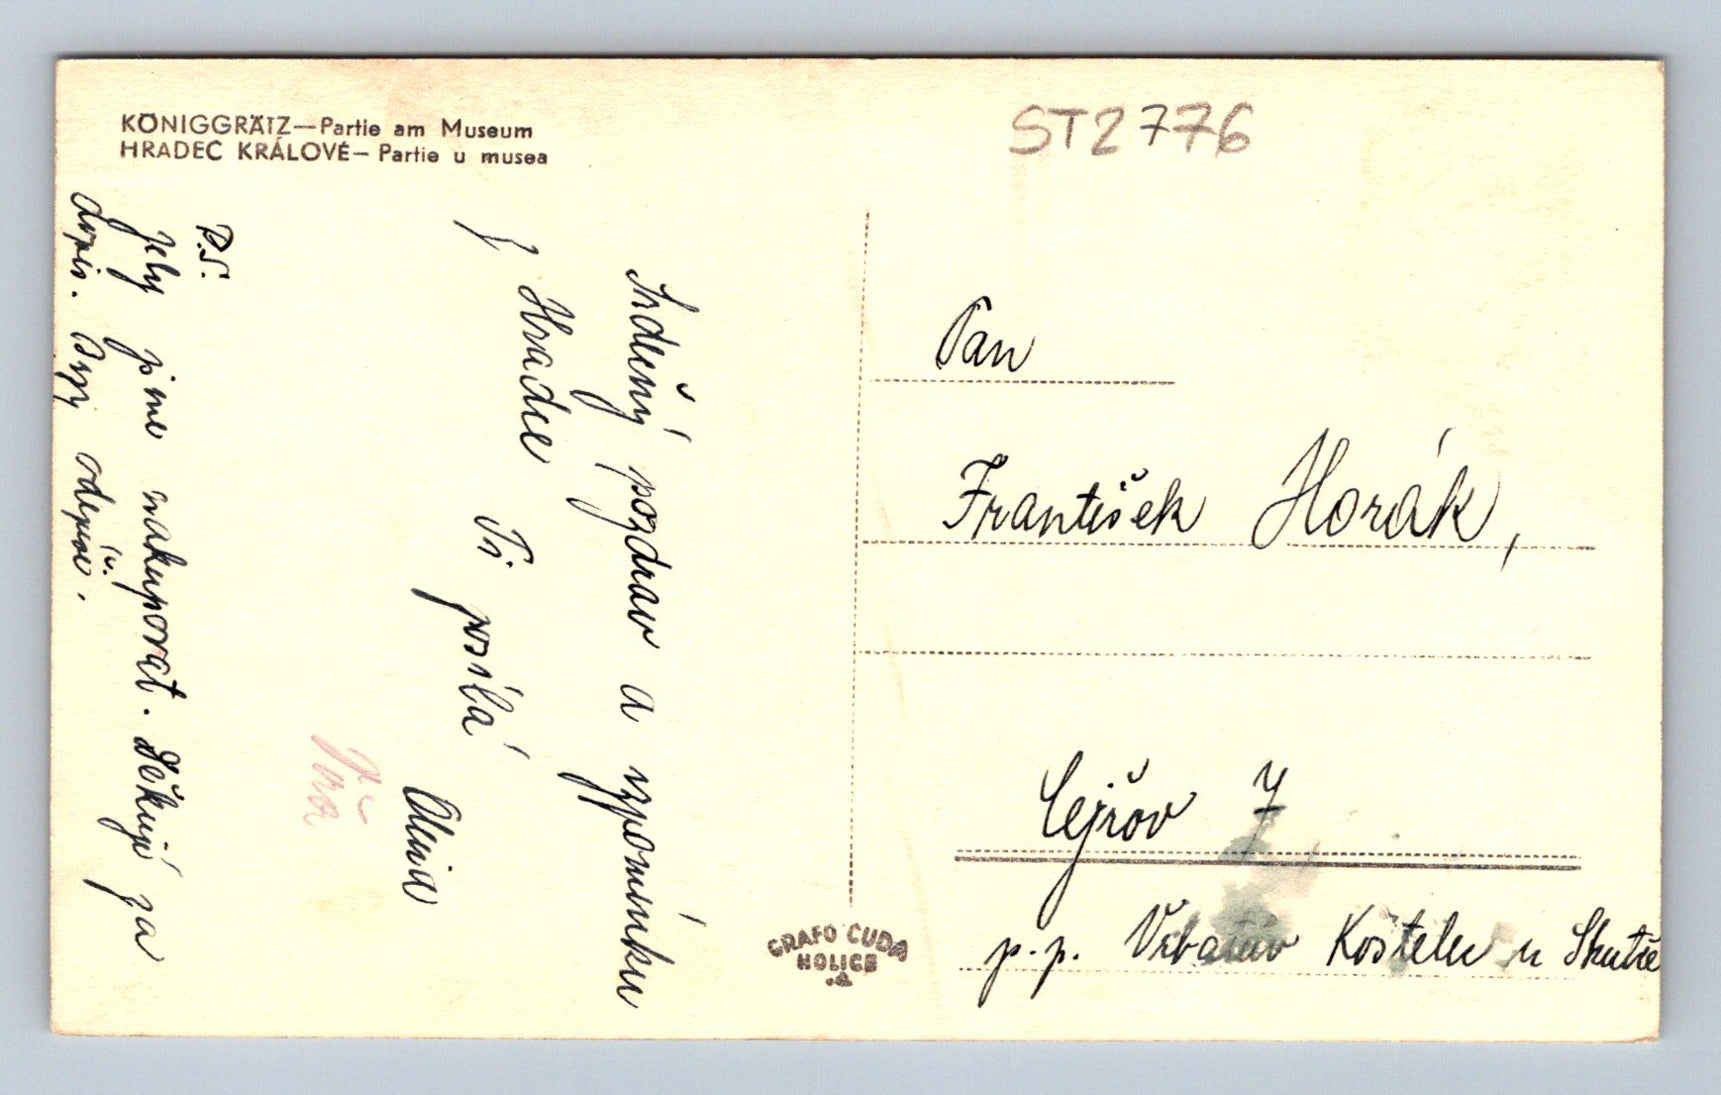 KÖNIGGRÄTZ—Partie am Museum
HRADEC KRÁLOVÉ—Partie u musea
ST2776
Srdečný pozdrav a vzpomínku
z Hradce Ti posílá
Alena
Jiřa
P.S.
Jely jsme nakupovat. Děkuji za
dopis. Brzy odepíši.
Pan
František Horák,
Cejřov 7
p.p. Vrbatův Kostelec u Skutče
GRAFO ČUDA
HOLICE